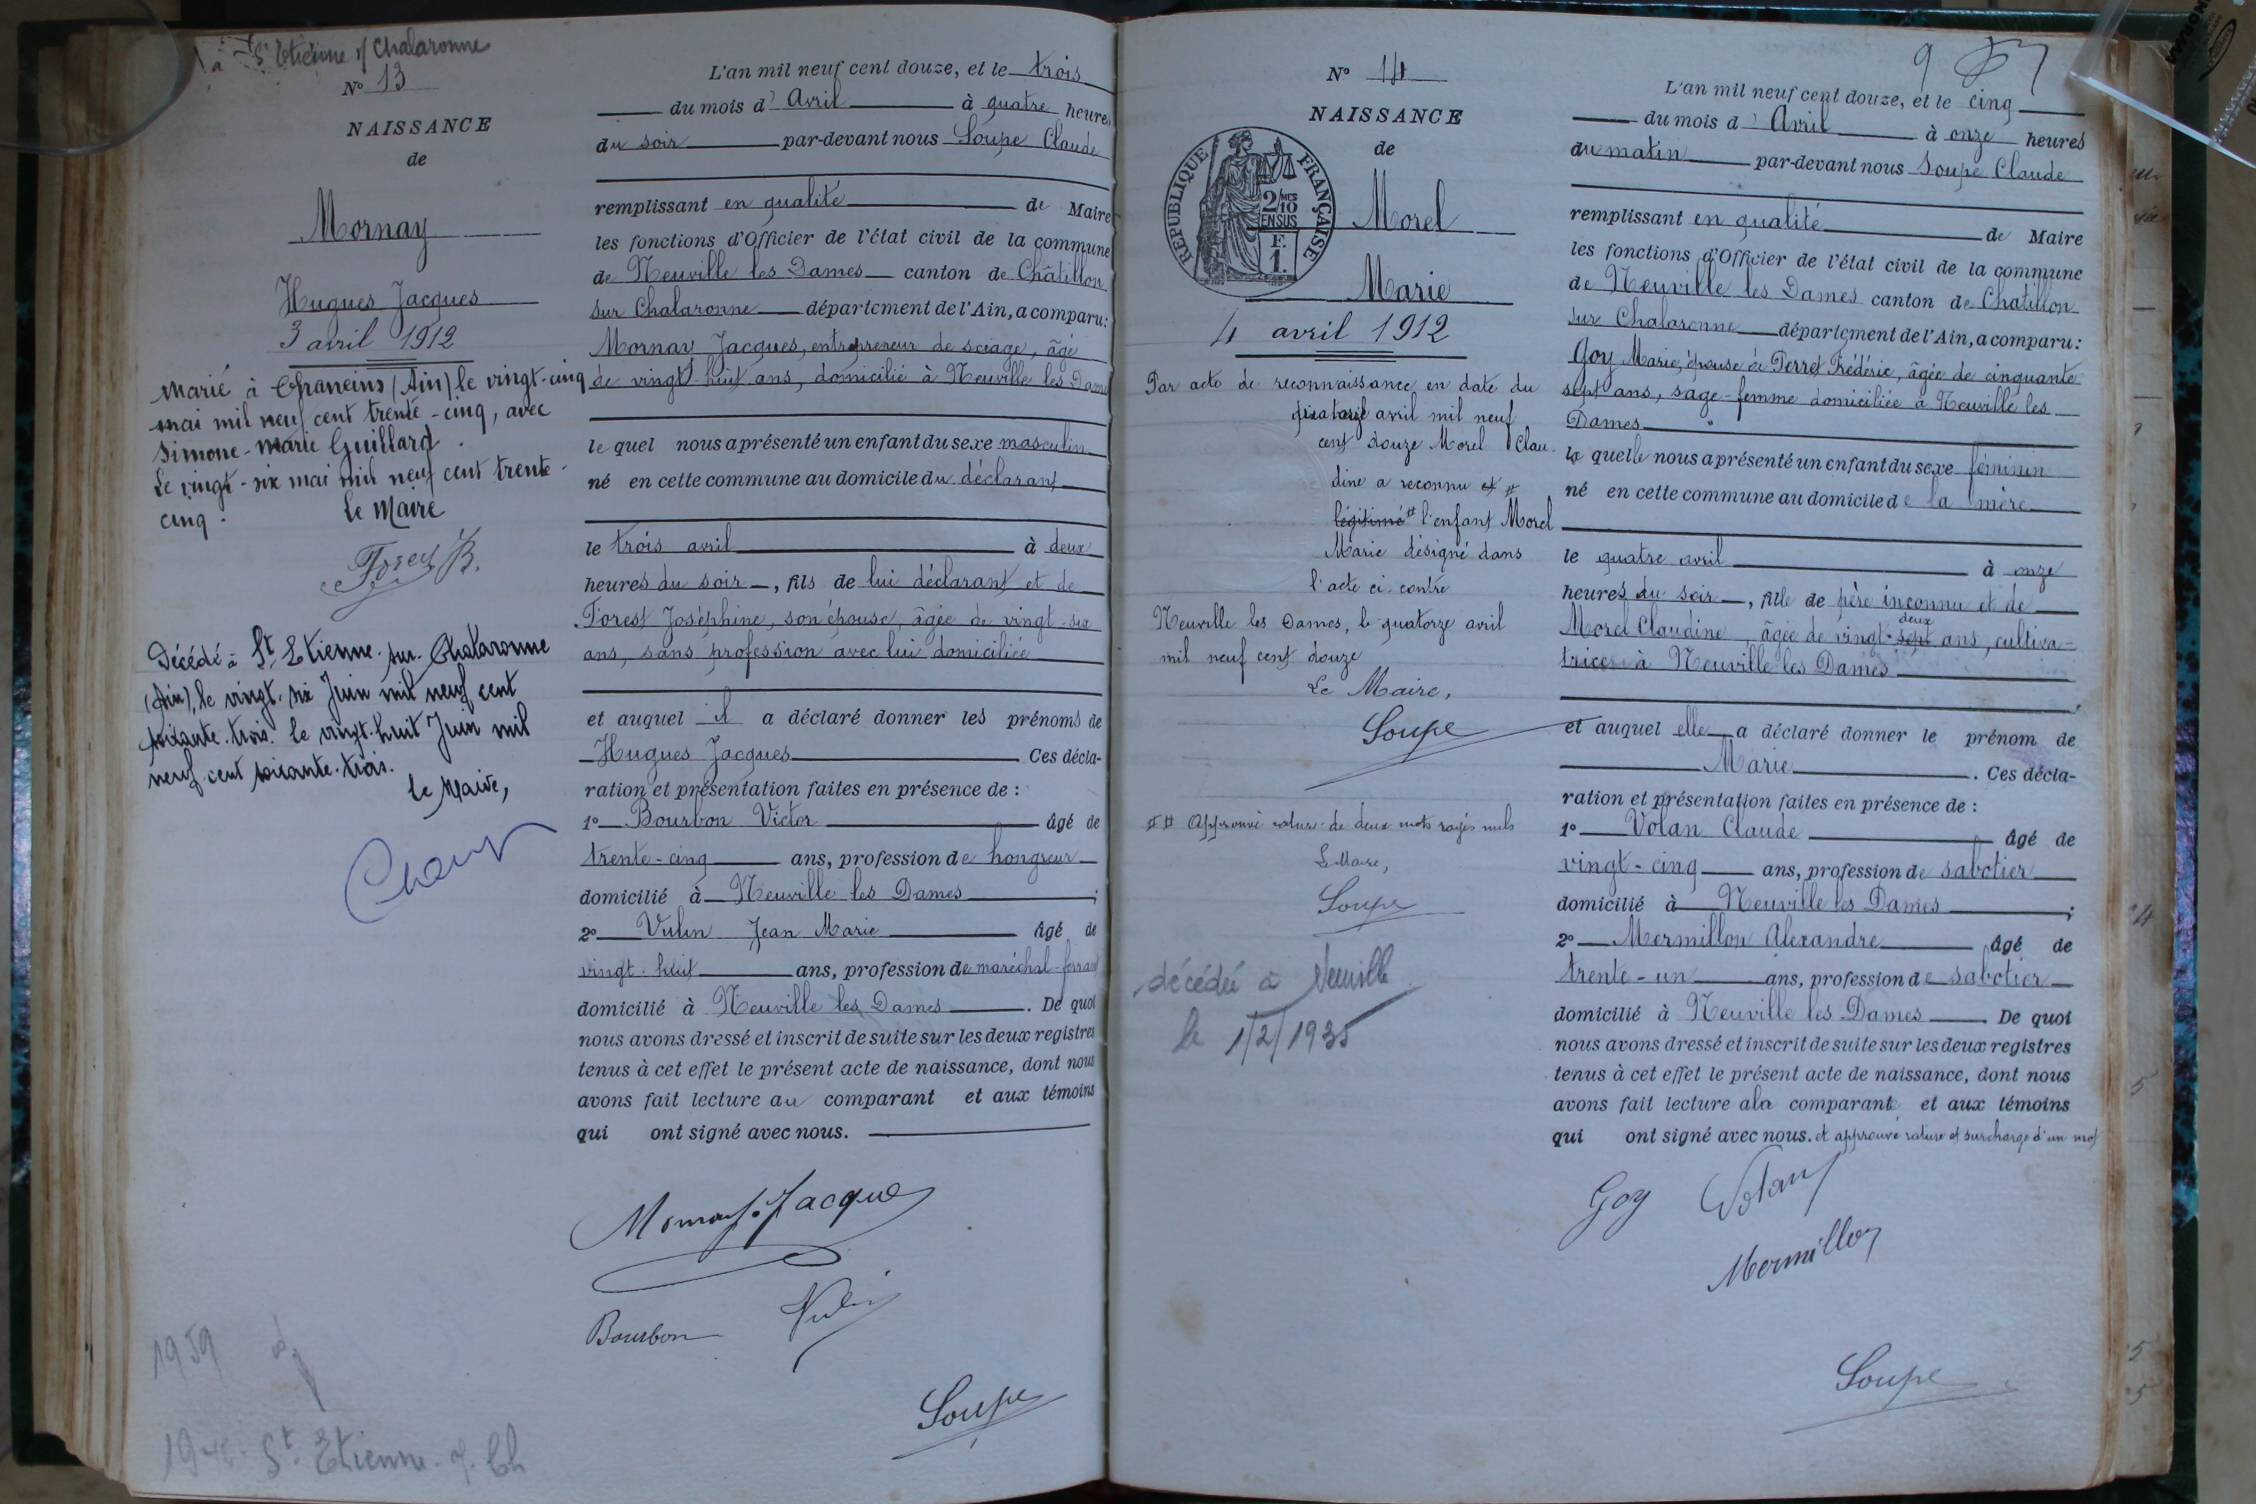 à St Etienne s/ Chalaronne
N° 13
NAISSANCE
de
Mornay
Hugues Jacques
3 avril 1912
Marié à Chaneins (Ain) le vingt-cinq
mai mil neuf cent trente-cinq, avec
Simone-Marie Guillard.
Le vingt-six mai mil neuf cent trente-
cinq.
Le Maire
Décédé à St Etienne-sur-Chalaronne
(Ain), le vingt-six Juin mil neuf cent
soixante-trois. Le vingt-huit Juin mil
neuf cent soixante-trois.
le Maire,
1959
St Etienne. s. Ch
L'an mil neuf cent douze, et le trois
du mois d'Avril à quatre heures
du soir par-devant nous Soupe Claude
remplissant en qualité de Maire
les fonctions d'Officier de l'état civil de la commune
de Neuville les Dames canton de Châtillon
sur Chalaronne département de l'Ain, a comparu:
Mornay Jacques, entrepreneur de sciage, âgé
de vingt-huit ans, domicilié à Neuville les Dames
le quel nous a présenté un enfant du sexe masculin
né en cette commune au domicile du déclarant
le trois avril à deux
heures du soir, fils de lui déclarant et de
Forest Joséphine, son épouse, âgée de vingt-six
ans, sans profession avec lui domiciliée
et auquel il a déclaré donner les prénoms de
Hugues Jacques Ces décla-
ration et présentation faites en présence de :
1° Bourbon Victor âgé de
trente-cinq ans, profession de hongreur
domicilié à Neuville les Dames ;
2° Vulin Jean Marie âgé de
vingt-huit ans, profession de maréchal-ferrant
domicilié à Neuville les Dames. De quoi
nous avons dressé et inscrit de suite sur les deux registres
tenus à cet effet le présent acte de naissance, dont nous
avons fait lecture au comparant et aux témoins
qui ont signé avec nous.
Mornay Jacques
Bourbon Vulin
Soupe
N° 14
NAISSANCE
de
RÉPUBLIQUE FRANÇAISE
2/10 MES
EN SUS
F.
1.
Morel
Marie
4 avril 1912
Par acte de reconnaissance en date du
quatorze avril mil neuf
cent douze Morel Clau-
dine a reconnu et #
légitimé # l'enfant Morel
Marie désigné dans
l'acte ci-contre
Neuville les Dames, le quatorze avril
mil neuf cent douze
Le Maire,
Soupe
## Approuvé rature de deux mots rayés nuls
Le Maire,
Soupe
décédée à Neuville
le 1/2/1935
9
L'an mil neuf cent douze, et le cinq
du mois d'Avril à onze heures
du matin par-devant nous Soupe Claude
remplissant en qualité de Maire
les fonctions d'Officier de l'état civil de la commune
de Neuville les Dames canton de Chatillon
sur Chalaronne département de l'Ain, a comparu:
Goy Marie, épouse de Perret Frédéric, âgée de cinquante
sept ans, sage-femme domiciliée à Neuville les
Dames
la quelle nous a présenté un enfant du sexe féminin
né en cette commune au domicile de la mère
le quatre avril à onze
heures du soir, fille de père inconnu et de
deux
Morel Claudine, âgée de vingt-sept ans, cultiva-
trice à Neuville les Dames
et auquel elle a déclaré donner le prénom de
Marie. Ces décla-
ration et présentation faites en présence de :
1° Volan Claude âgé de
vingt-cinq ans, profession de sabotier
domicilié à Neuville les Dames ;
2° Mermillon Alexandre âgé de
trente-un ans, profession de sabotier
domicilié à Neuville les Dames De quoi
nous avons dressé et inscrit de suite sur les deux registres
tenus à cet effet le présent acte de naissance, dont nous
avons fait lecture à la comparante et aux témoins
qui ont signé avec nous. et approuvé rature et surcharge d'un mot
Goy Volan
Mermillon
Soupe